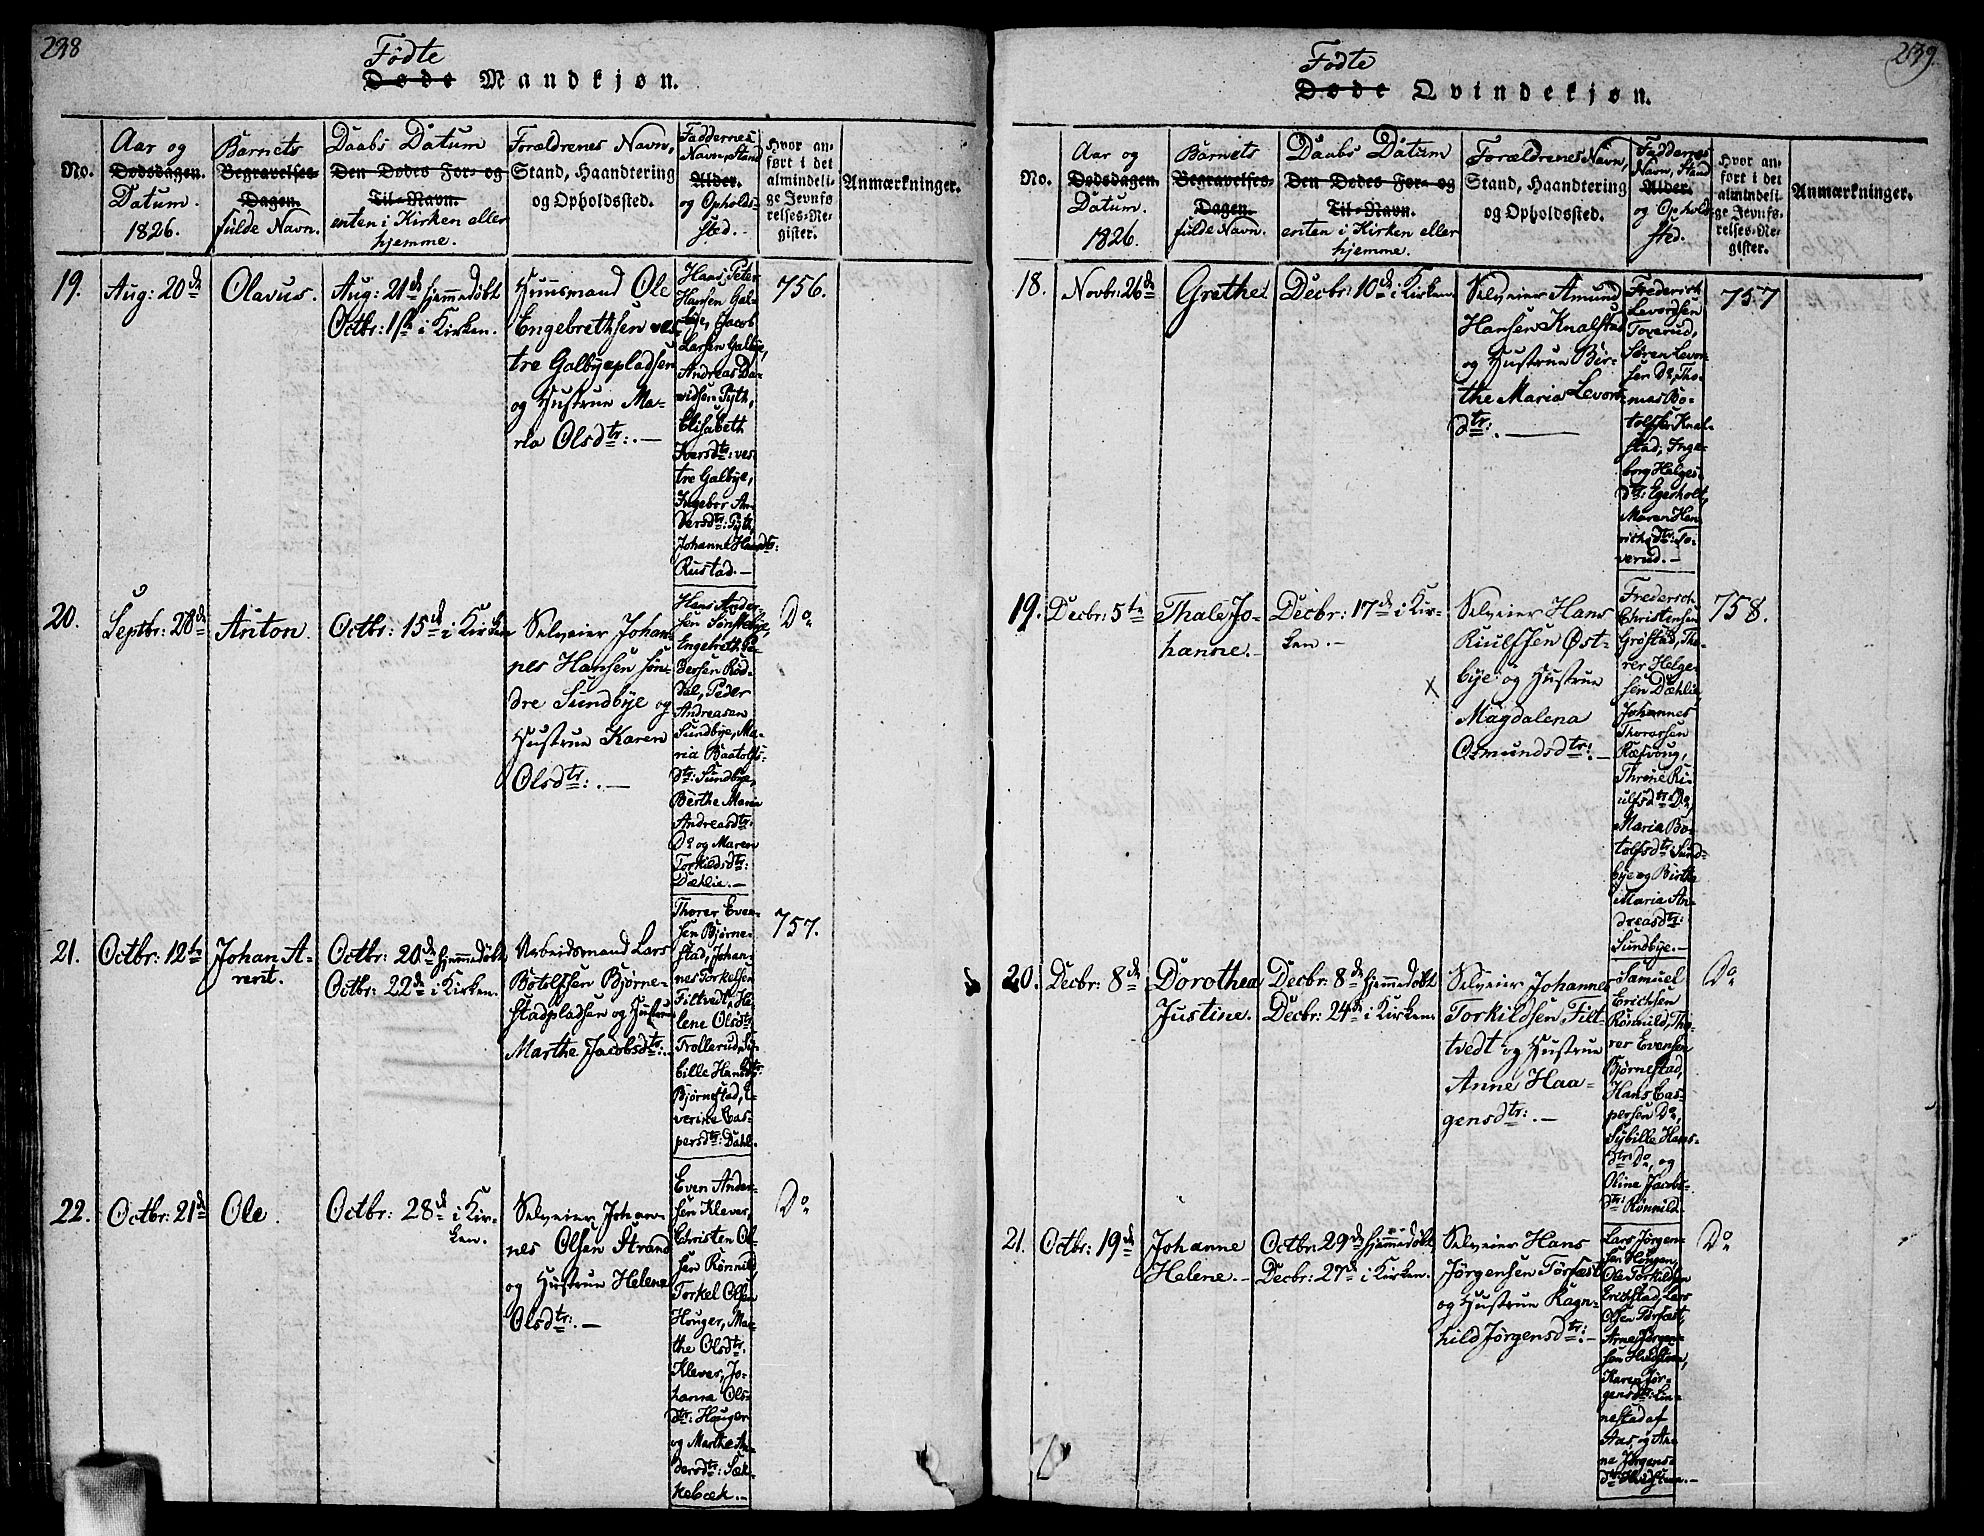 238
Fødte
Døde Mandkjøn.
No.
Aar og
Dødsdagen.
Datum.
1826.
Barnets
Begravelses-
Dagen.
fulde Navn.
Daabs Datum
Den Dødes For- og
Til-Navn.
enten i Kirken eller
hjemme.
Forældrenes Navn,
Stand, Haandtering
og Opholdssted.
Faddernes
Navn, Stand
Alder.
og Opholds-
sted.
Hvor an-
ført i det
almindeli-
ge Jevnfø-
relses-Re-
gister.
Anmærkninger.
19.
Aug: 20de
Olavus.
Aug: 21de hjemmedøbt
Octbr: 1ste i Kirken.
Huusmand Ole
Engebrethsen ves-
tre Galbyepladsen
og Hustrue Ma-
ria Olsdtr: . —
Hans Peter
Hansen Gal-
bye, Jacob
Larsen Galbye,
Andreas Da-
vidsen Pyth,
Elisabeth
Iversdtr: ves-
tre Galbye,
Ingebor An-
dersdtr: Pyth,
Johanne Hansdtr:
Rustad. —
756.
20.
Septbr: 28de
Anton.
Octbr: 15de i Kirken
Selveier Johan-
nes Hansen søn-
dre Sundbye og
Hustrue Karen
Olsdtr: . —
Hans Ander-
sen Sønstebye,
Engebreth Pe-
dersen Rød-
dal, Peder
Andreasen
Sundbye, Ma-
ria Baatolfs-
dtr: Sundbye,
Berthe Maria
Andreasdtr:
Do og Maren
Torkildsdtr:
Dæhlie. —
Do
21.
Octbr: 12te
Johan A-
rent.
Octbr: 20de hjemmedøbt
Octbr: 22de i Kirken.
Arbeidsmand Lars
Botolfsen Bjørne-
stadpladsen og Hustrue
Marthe Jacobsdtr: .
Thorer Even-
sen Bjørne-
stad, Johan-
nes Torkelsen
Filtvedt, He-
lene Olsdtr
Trollerud, Sy-
bille Hansdtr
Bjørnestad, E-
verine Cas-
persdtr: Dahl.
757.
22.
Octbr: 21de
Ole.
Octbr: 28de i Kir-
ken.
Selveier Johan-
nes Olsen Strand
og Hustrue Helene
Olsdtr: . —
Even Ander-
sen Klever,
Christen Ol-
sen Rønnild,
Torkel Olsen
Houger, Mar-
the Olsdtr.
Klever, Jo-
hanna Ols-
dtr: Houger
og Marthe An-
dersdtr: Sæk-
kebæk. —
Do
239.
Fødte
Døde Qvindekjøn.
No.
Aar og
Dødsdagen.
Datum.
1826.
Barnets
Begravelses-
Dagen.
fulde Navn.
Daabs Datum
Den Dødes For- og
Til-Navn.
enten i Kirken eller
hjemme.
Forældrenes Navn,
Stand, Haandtering
og Opholdssted.
Faddernes
Navn, Stand
Alder.
og Ophold-
sted.
Hvor an-
ført i det
almindeli-
ge Jevnfø-
relses-Re-
gister.
Anmærkninger.
18.
Novbr: 26de
Grethe.
Decbr: 10de i Kirken.
Selveier Amund
Hansen Knalstad
og Hustrue Bir-
the Maria Levor-
dtr: . —
Frederich
Levordsen
Toverud,
Søren Levor-
sen Do, Tho-
mas Bo-
tolfsen Knal-
stad, Inge-
borg Helges-
dtr: Egerholt,
Maren Hen-
richsdtr: To-
verud. —
757
19.
Decbr: 5te
Thale Jo-
hanne. —
Decbr: 17de i Kir-
ken. —
X
Selveier Hans
Riulfsen Øst-
bye og Hustrue
Magdalena
Osmundsdtr: —
Frederich
Christensen
Grøstad, Tho-
rer Helge-
sen Dæhlie,
Johannes
Thorersen
Ræsvoug,
Threne Ri-
ulfsdtr Do,
Maria Bo-
tolfsdtr: Sund-
bye og Birthe
Maria An-
dreasdtr:
Sundbye. —
758.
20.
Decbr: 8de
Dorothea
Justine.
Decbr: 8de hjemmedøbt
Decbr: 24de i Kirken.
Selveier Johannes
Torkildsen Filt-
tvedt og Hustrue
Anne Haa-
gensdtr: . —
Samuel
Erichsen
Rønnild, Tho-
rer Evensen
Bjørnestad,
Hans Cas-
persen Do,
Sybille Hans-
dtr Do, og
Oline Jacobs-
dtr: Rønnild.
Do
21.
Octbr: 19de
Johanne
Helene. —
Octbr: 29de hjemmedøbt
Decbr: 27de i Kirken.
Selveier Hans
Jørgensen Torfæst
og Hustrue Ragn-
hild Jørgensdtr: —
Lars Jørgen-
sen Horgen,
Ole Torkildsen
Erichstad, Lars
Olsen Torfæst,
Arne Jørgen-
sen
Karen Jør-
gensdtr: Lin-
nestad af
Aas, og An-
ne Jørgens-
dtr
Do